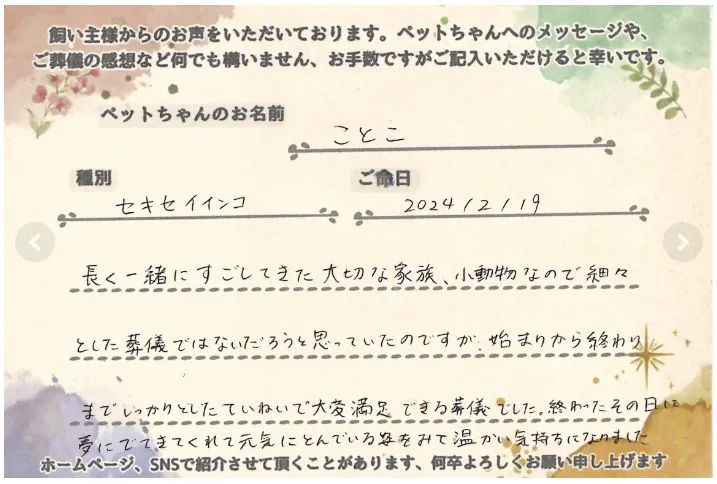 飼い主様からのお声をいただいております。ペットちゃんへのメッセージや、
ご葬儀の感想など何でも構いません、お手数ですがご記入いただけると幸いです。
ペットちゃんのお名前
ことこ
種別
ご命日
セキセイインコ
2024/2/19
長く一緒にすごしてきた大切な家族、小動物なので細々
とした葬儀ではないだろうと思っていたのですが、始まりから終わり
までしっかりとしたていねいで大変満足できる葬儀でした。終わったその日に
夢にでてきてくれて元気にとんでいる姿をみて温かい気持ちになりました
ホームページ、SNSで紹介させて頂くことがあります、何卒よろしくお願い申し上げます